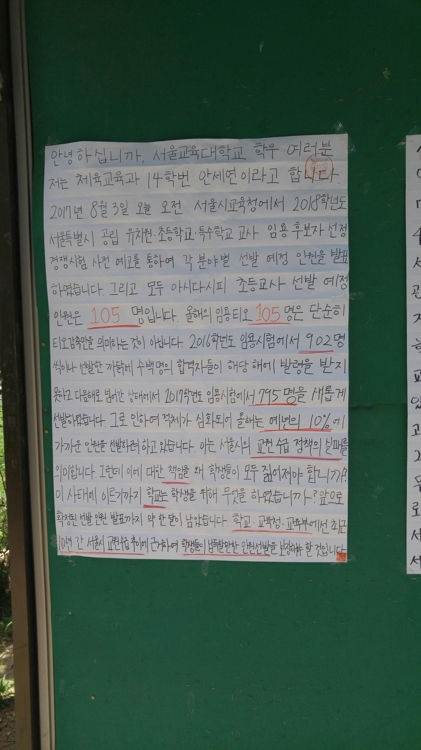 안녕하십니까, 서울교육대학교 학우 여러분
저는 체육교육과 14학번 안세연이라고 합니다
2017년 8월 3일 오늘 오전 서울시교육청에서 2018학년도
서울특별시 공립 유치원·초등학교·특수학교 교사 임용후보자 선정
경쟁시험 사전 예고를 통하여 각 분야별 선발 예정 인원을 발표
하였습니다. 그리고 모두 아시다시피 초등교사 선발 예정
인원은 105 명입니다. 올해의 임용티오 105명은 단순히
티오감축만을 의미하는 것이 아닙니다. 2016학년도 임용시험에서 902명
씩이나 선발한 까닭에 수백명의 합격자들이 해당 해에 발령을 받지
못하고 다음해로 넘어간 상태에서 2017학년도 임용시험에서 795명을 새롭게
선발하였습니다. 그로 인하여 적체가 심화되어 올해는 예년의 10%에
가까운 인원을 선발하려 하고 있습니다. 이는 서울시의 교원수급 정책의 실패를
의미합니다. 그런데 이에 대한 책임을 왜 학생들이 모두 짊어져야 합니까?
이 사태에 이르기까지 학교는 학생을 위해 무엇을 하였습니까? 앞으로
확정된 선발 인원 발표까지 약 한 달이 남았습니다. 학교·교육청·교육부에선 최근
10여년 간 서울시 교원수급 추이에 근거하여 학생들이 납득할만한 인원선발을 보장해야 할 것입니다